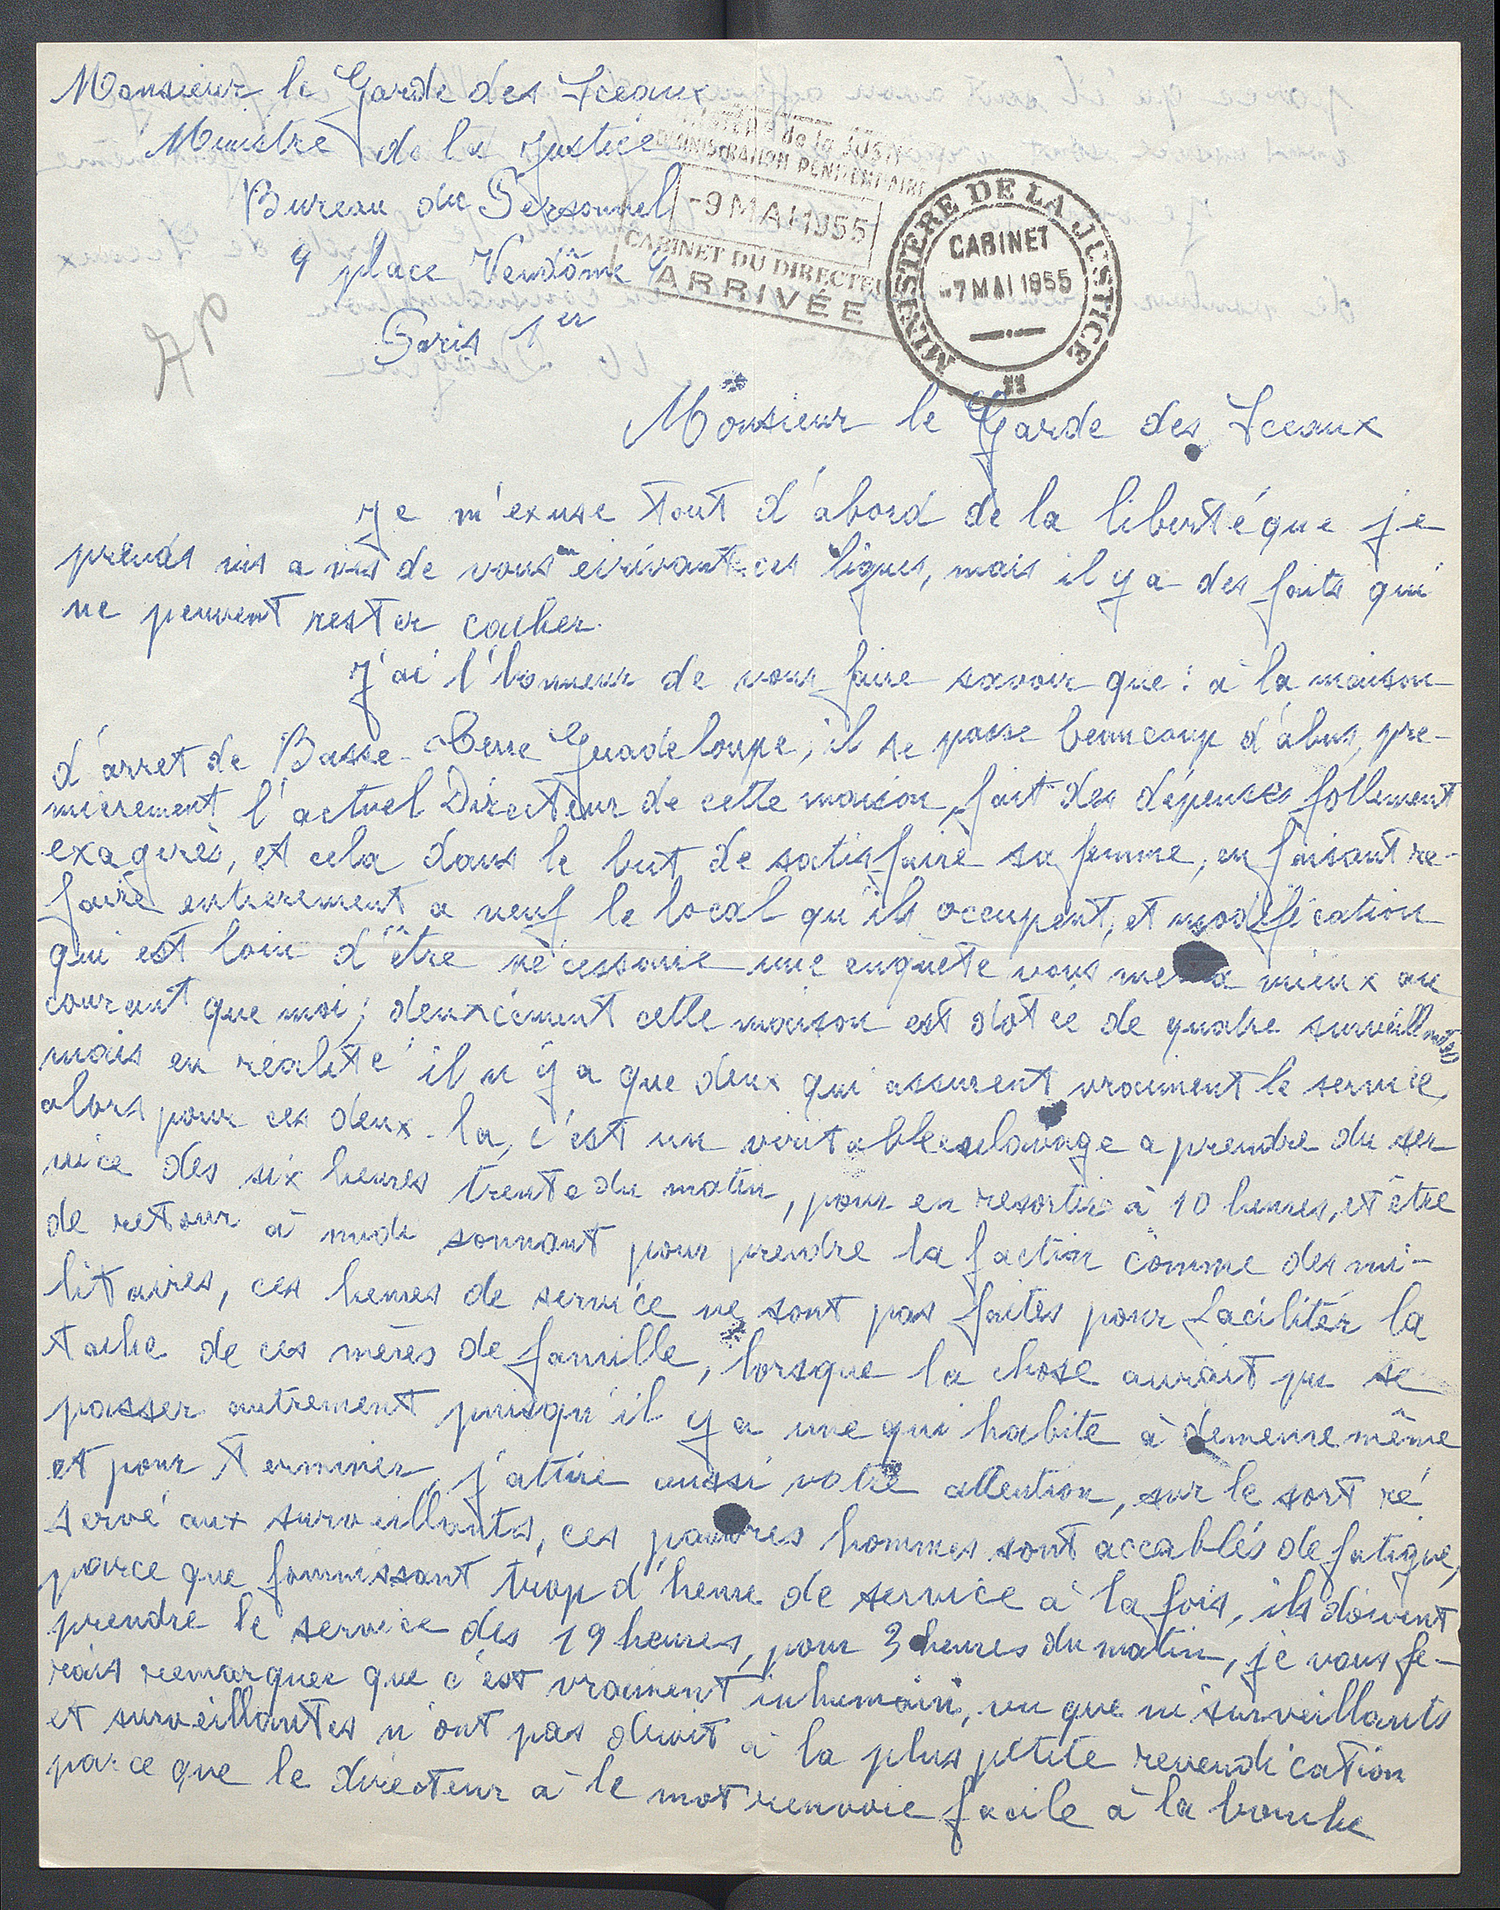 Monsieur le Garde des Sceaux
Ministre de la Justice
Bureau du Personnel
9 place Vendôme
Paris 1er
AP
MINISTÈRE de la JUSTICE
ADMINISTRATION PÉNITENTIAIRE
-9 MAI 1955
CABINET DU DIRECTEUR
ARRIVÉE
MINISTÈRE DE LA JUSTICE
CABINET
-7 MAI 1955
Monsieur le Garde des Sceaux
Je m'exuse tout d'abord de la liberté que je
prends vis a vis de vous en ecrivant ces lignes, mais il y a des faits qui
ne peuvent rester cacher.
J'ai l'honneur de vous faire savoir que : a la maison
d'arret de Basse-Terre Guadeloupe, il se passe beaucoup d'abus, pre-
mierement, l'actuel Directeur de cette maison, fait des dépenses follement
exagerès, et cela dans le but de satisfaire sa femme, en faisant re-
faire entierement a neuf le local qu'ils occupent, et modification
qui est loin d'être nècessaire une enquete vous mettra mieux au
courant que moi; deuxcement cette maison est dotée de quatre surveillantes
mais en réalité il n'y a que deux qui assurent vraiment le service,
alors pour ces deux-la, c'est un veritable esclavage a prendre du ser
vice des six heures trente du matin, pour en resortir à 10 heures, et être
de retour à midi sonnant pour prendre la faction comme des mi-
litaires, ces heures de service ne sont pas faites pour facilitér la
tache de ces mères de famille, lorsque la chose aurait pu se
passer autrement puisqu'il y a une qui habite à demeure même
et pour terminer, j'attire aussi votre attention, sur le sort ré
servé aux surveillants, ces pauvres hommes sont accablés de fatigue,
parce que fournissant trop d'heure de service à la fois, ils doivent
prendre le service des 19 heures, pour 3 heures du matin, je vous fe-
rais remarquer que c'est vraiment inhumain, vu que ni surveillants
et surveillantes n'ont pas droit à la plus petite revendication
parce que le directeur à le mot renvoie facile à la bouche